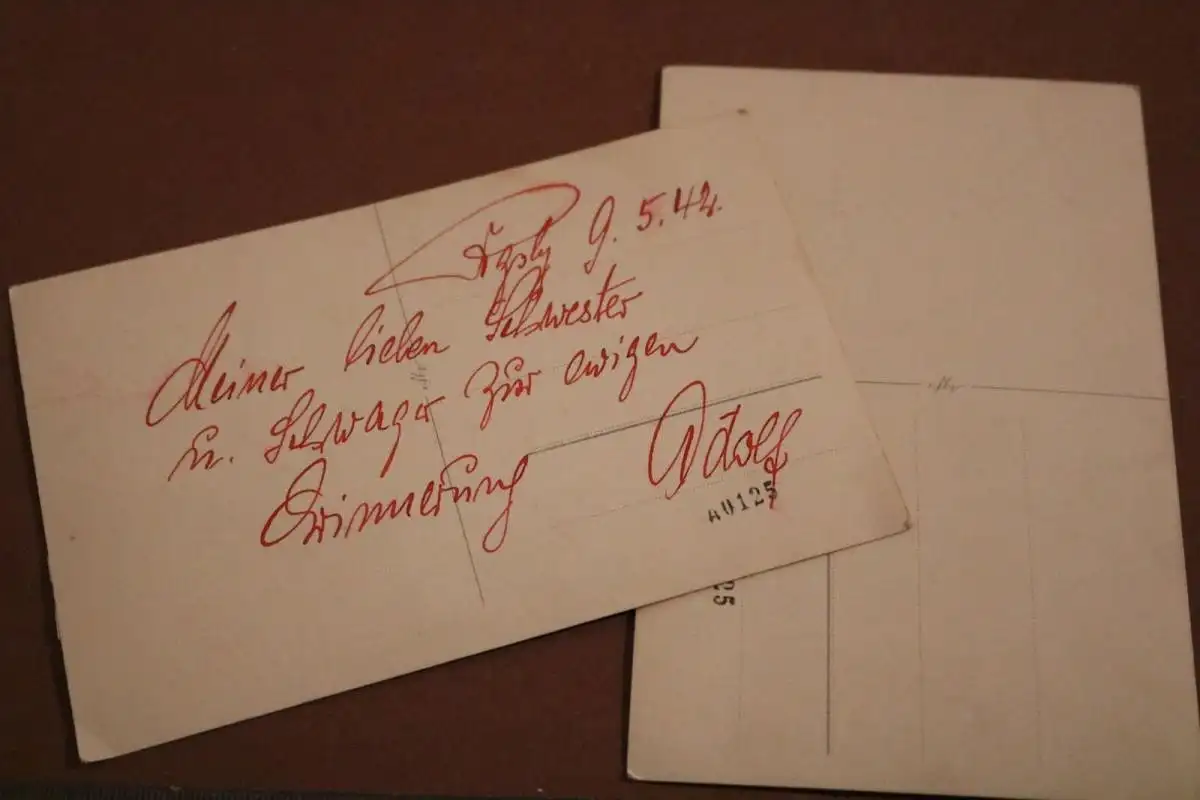 9. 5. 42.
Meiner lieben Schwester
u. Schwager zur ewigen
Erinnerung Adolf
A0125
25